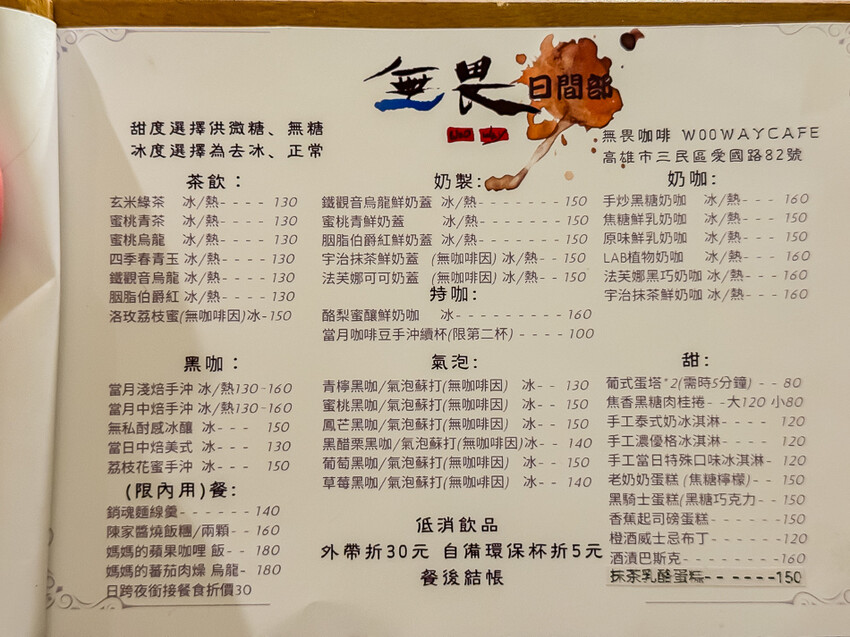 無畏 日間部
甜度選擇供微糖、無糖
冰度選擇為去冰、正常
無畏咖啡 W00WAYCAFE
高雄市三民區愛國路82號
茶飲：
玄米綠茶 冰/熱---- 130
蜜桃青茶 冰/熱---- 130
蜜桃烏龍 冰/熱---- 130
四季春青玉 冰/熱---- 130
鐵觀音烏龍 冰/熱---- 130
胭脂伯爵紅 冰/熱---- 130
洛玫荔枝蜜(無咖啡因)冰-150
奶製:
鐵觀音烏龍鮮奶蓋 冰/熱------- 150
蜜桃青鮮奶蓋 冰/熱------- 150
胭脂伯爵紅鮮奶蓋 冰/熱------- 150
宇治抹茶鮮奶蓋 (無咖啡因) 冰/熱-- 150
法芙娜可可奶蓋 (無咖啡因) 冰/熱-- 150
特咖:
酪梨蜜釀鮮奶咖 冰-------- 160
當月咖啡豆手沖續杯(限第二杯) ---- 100
奶咖:
手炒黑糖奶咖 冰/熱--- 160
焦糖鮮乳奶咖 冰/熱--- 150
原味鮮乳奶咖 冰/熱--- 150
LAB植物奶咖 冰/熱--- 160
法芙娜黑巧奶咖 冰/熱--- 160
宇治抹茶鮮奶咖 冰/熱--- 160
黑咖：
當月淺焙手沖 冰/熱130-160
當月中焙手沖 冰/熱130-160
無私耐感冰釀 冰--- 150
當日中焙美式 冰--- 130
荔枝花蜜手沖 冰--- 150
氣泡:
青檸黑咖/氣泡蘇打(無咖啡因) 冰-- 130
蜜桃黑咖/氣泡蘇打(無咖啡因) 冰-- 150
鳳芒黑咖/氣泡蘇打(無咖啡因) 冰-- 150
黑醋栗黑咖/氣泡蘇打(無咖啡因)冰-- 140
葡萄黑咖/氣泡蘇打(無咖啡因) 冰-- 150
草莓黑咖/氣泡蘇打(無咖啡因) 冰-- 140
甜:
葡式蛋塔*2(需時5分鐘) -- 80
焦香黑糖肉桂捲--大120 小80
手工泰式奶冰淇淋---- 120
手工濃優格冰淇淋---- 120
手工當日特殊口味冰淇淋- 120
老奶奶蛋糕 (焦糖檸檬)-- 150
黑騎士蛋糕(黑糖巧克力-- 150
香蕉起司磅蛋糕------150
橙酒威士忌布丁------120
酒漬巴斯克--------160
抹茶乳酪蛋糕-- -----150
(限內用)餐:
銷魂麵線羹------ 140
陳家醬燒飯糰/兩顆-- 160
媽媽的蘋果咖哩 飯-- 180
媽媽的蕃茄肉燥 烏龍- 180
日跨夜銜接餐食折價30
低消飲品
外帶折30元 自備環保杯折5元
餐後結帳